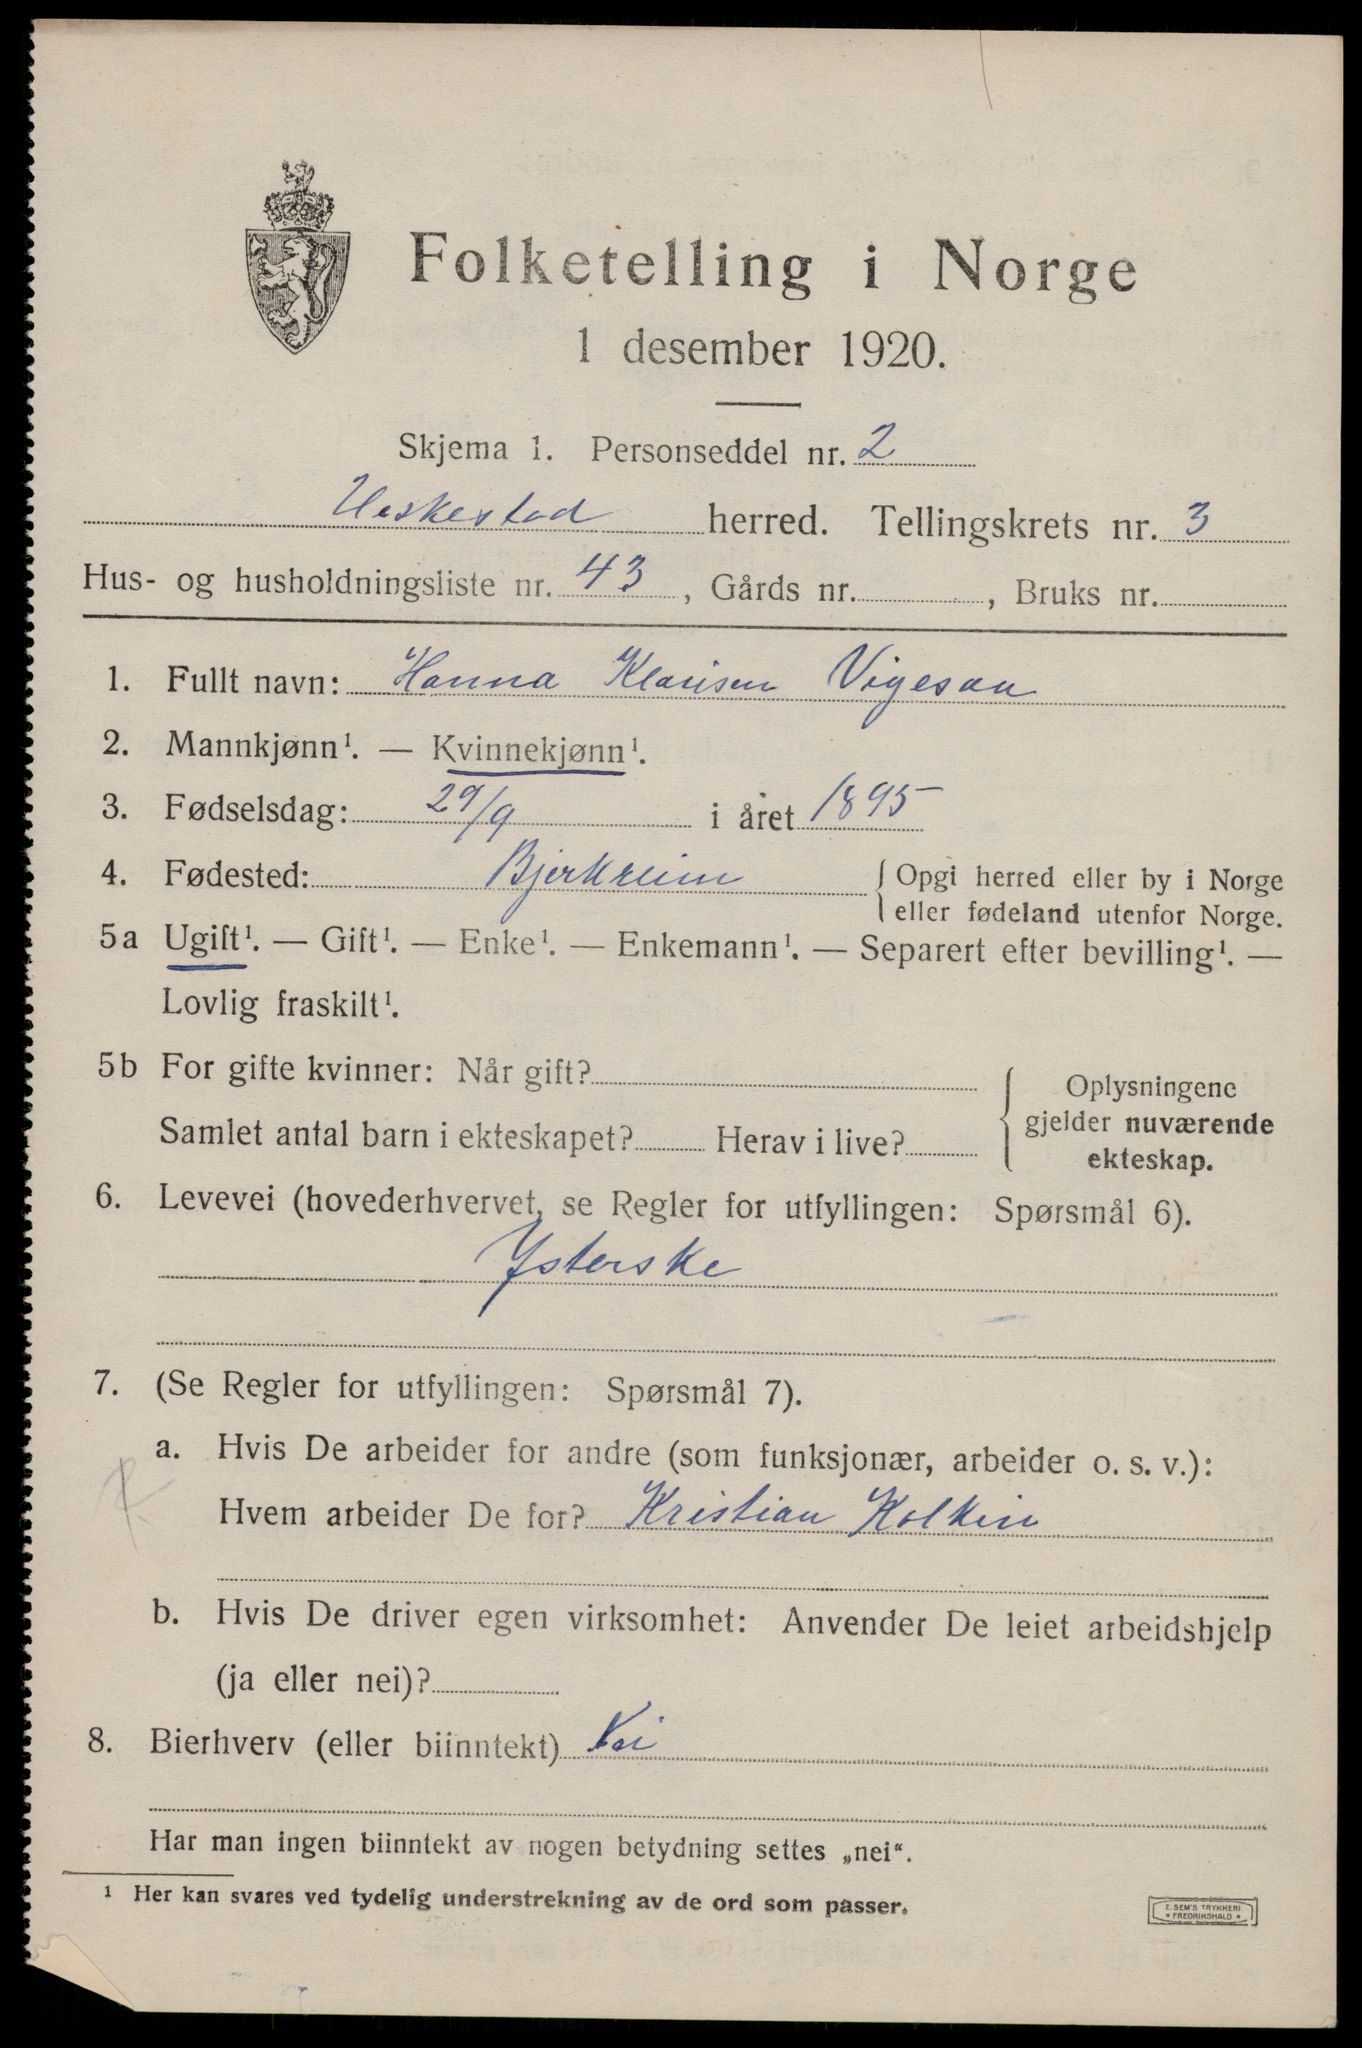 Folketelling i Norge
1 desember 1920.
Skjema 1. Personseddel nr. 2
Heskestad herred. Tellingskrets nr. 3
Hus- og husholdningsliste nr. 43, Gårds nr. , Bruks nr.
1. Fullt navn: Hanna Klarisen Vigesaa
2. Mannkjønn¹. — Kvinnekjønn¹.
3. Fødselsdag: 29/9 i året 1895
4. Fødested: Bjerkreim { Opgi herred eller by i Norge
eller fødeland utenfor Norge.
5a Ugift¹. — Gift¹. — Enke¹. — Enkemann¹. — Separert efter bevilling¹. —
Lovlig fraskilt¹.
5b For gifte kvinner: Når gift?
Samlet antal barn i ekteskapet? Herav i live?
{ Oplysningene
gjelder nuværende
ekteskap.
6. Levevei (hovederhvervet, se Regler for utfyllingen: Spørsmål 6).
Ysterske
7. (Se Regler for utfyllingen: Spørsmål 7).
a. Hvis De arbeider for andre (som funksjonær, arbeider o. s. v.):
Hvem arbeider De for? Kristian
b. Hvis De driver egen virksomhet: Anvender De leiet arbeidshjelp
(ja eller nei)?
8. Bierhverv (eller biinntekt) Nei
Har man ingen biinntekt av nogen betydning settes „nei“.
¹ Her kan svares ved tydelig understrekning av de ord som passer.
E. SEM'S TRYKKERI
* FREDRIKSHALD *